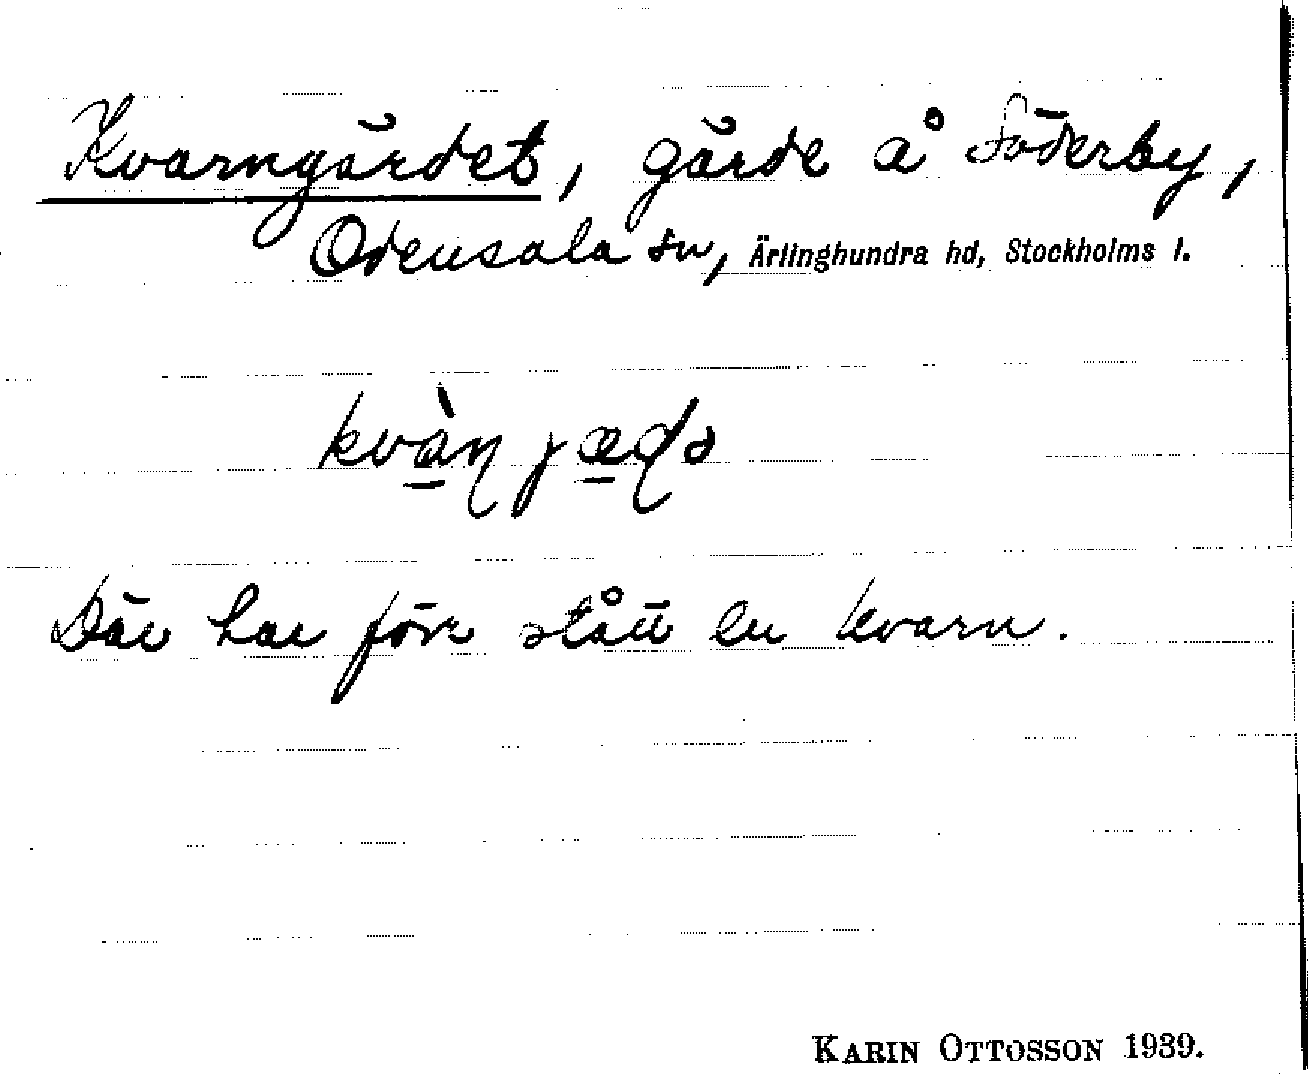 Kvarngärdet, gärde å Söderby,
Odensala sn, Ärlinghundra hd, Stockholms l.
kvàɳ jæɖə
Där har förr stått en kvarn.
KARIN OTTOSSON 1939.